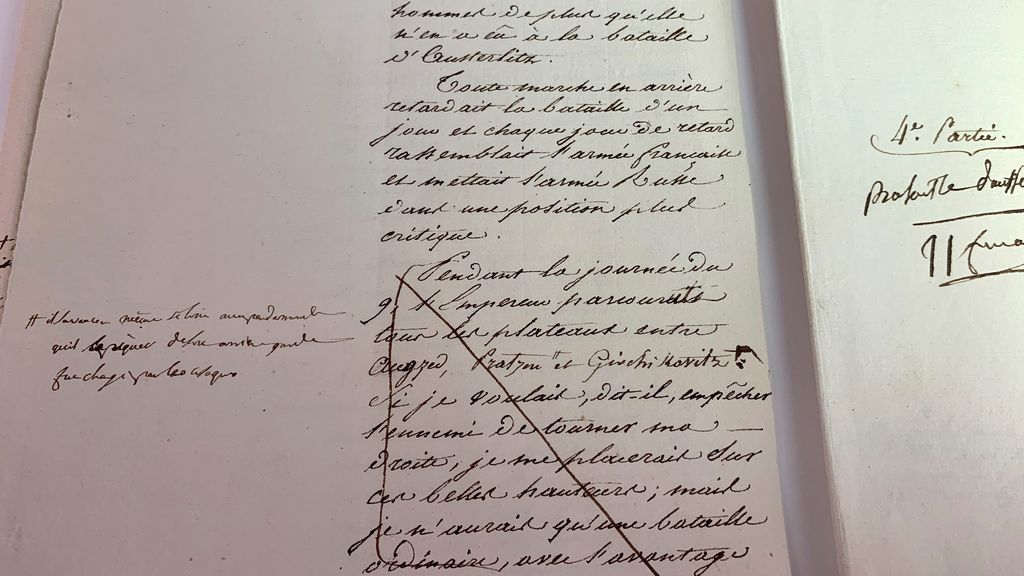 hommes de plus qu'elle
n'en a eu à la bataille
d'Austerlitz.
Toute marche en arrière
retardait la bataille d'un
jour et chaque jour de retard
rassemblait l'armée française
et mettait l'armée Russe
dans une position plus
critique.
Pendant la journée du
9, l'Empereur parcourut
tous les plateaux entre
Augzed, Pratzen et Girchikovitz
Si je voulais, dit-il, empêcher
l'ennemi de tourner ma
droite, je me placerais sur
ces belles hauteurs; mais
je n'aurais qu'une bataille
ordinaire, avec l'avantage
même si loin
qu'il arrière garde
fut chargé par
4e. Partie.